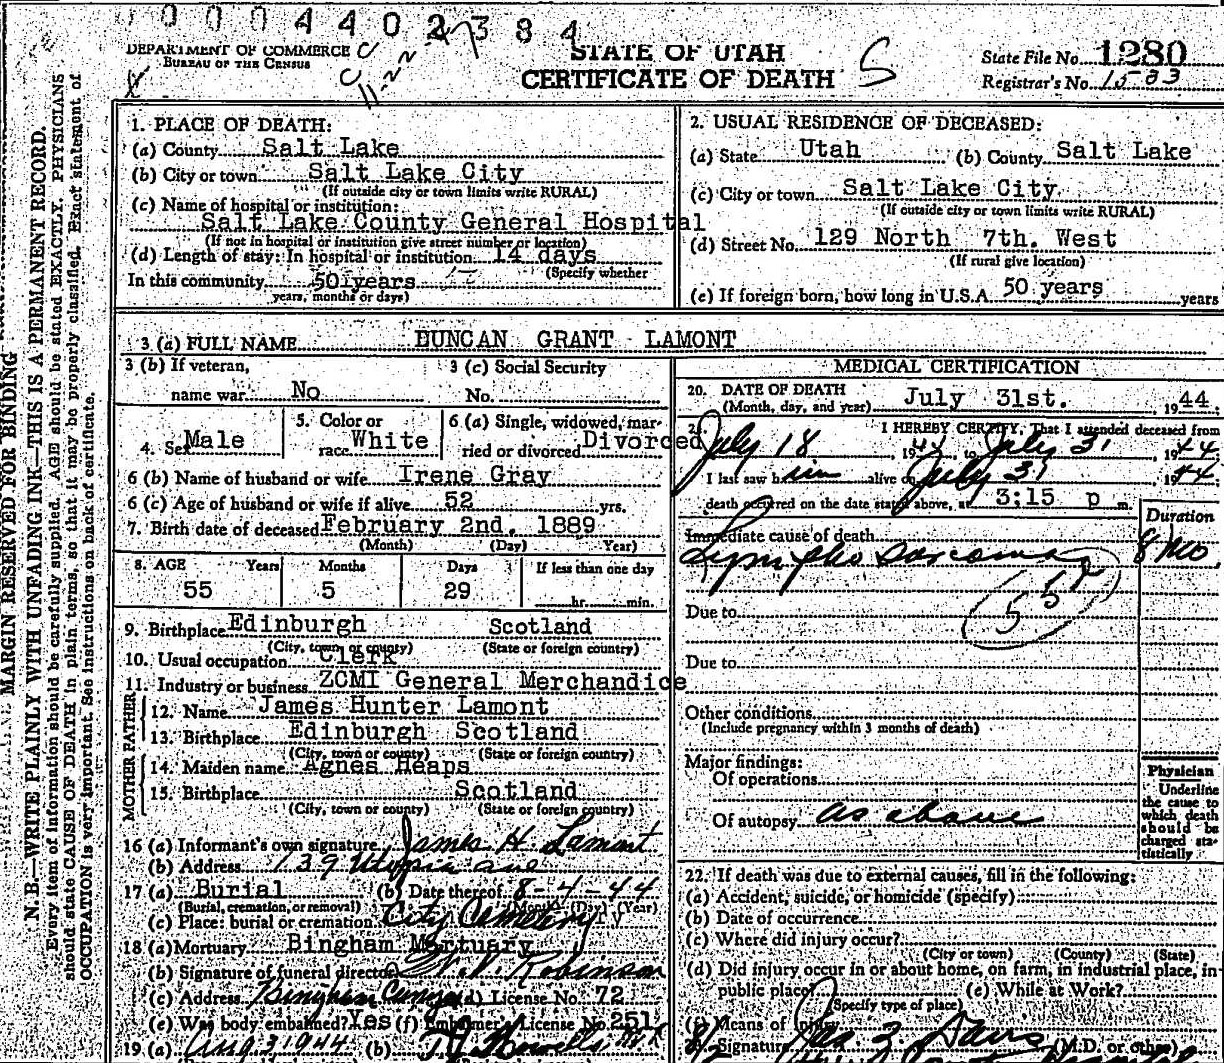 0004402384
DEPARTMENT OF COMMERCE
BUREAU OF THE CENSUS
STATE OF UTAH
CERTIFICATE OF DEATH
S
State File No. 1280
Registrar's No. 1533
MARGIN RESERVED FOR BINDING
N. B.—WRITE PLAINLY WITH UNFADING INK—THIS IS A PERMANENT RECORD.
Every item of information should be carefully supplied. AGE should be stated EXACTLY. PHYSICIANS
should state CAUSE OF DEATH in plain terms, so that it may be properly classified. Exact statement of
OCCUPATION is very important. See instructions on back of certificate.
1. PLACE OF DEATH:
(a) County Salt Lake
(b) City or town Salt Lake City
(If outside city or town limits write RURAL)
(c) Name of hospital or institution:
Salt Lake County General Hospital
(If not in hospital or institution give street number or location)
(d) Length of stay: In hospital or institution 14 days
(Specify whether
In this community 50 years
years, months or days)
2. USUAL RESIDENCE OF DECEASED:
(a) State Utah (b) County Salt Lake
(c) City or town Salt Lake City
(If outside city or town limits write RURAL)
(d) Street No. 129 North 7th. West
(If rural give location)
(e) If foreign born, how long in U.S.A. 50 years years
3 (a) FULL NAME DUNCAN GRANT LAMONT
3 (b) If veteran,
name war No
3 (c) Social Security
No.
4. Sex Male
5. Color or
race White
6 (a) Single, widowed, mar-
ried or divorced Divorced
6 (b) Name of husband or wife Irene Gray
6 (c) Age of husband or wife if alive 52 yrs.
7. Birth date of deceased February 2nd, 1889
(Month) (Day) Year)
8. AGE Years Months Days If less than one day
55 5 29 hr. min.
9. Birthplace Edinburgh Scotland
(City, town or county) (State or foreign country)
10. Usual occupation Clerk
11. Industry or business ZCMI General Merchandice
FATHER
12. Name James Hunter Lamont
13. Birthplace Edinburgh Scotland
(City, town or county) (State or foreign country)
MOTHER
14. Maiden name Agnes Heaps
15. Birthplace Scotland
(City, town or county) (State or foreign country)
16 (a) Informant's own signature James H. Lamont
(b) Address 139 Utopia ave
17 (a) Burial (b) Date thereof 8-4-44
(Burial, cremation, or removal) (Month) (Day) (Year)
(c) Place: burial or cremation City Cemetery
18 (a) Mortuary Bingham Mortuary
(b) Signature of funeral director Robinson
(c) Address Bingham Canyon (d) License No. 72
(e) Was body embalmed? Yes (f) Embalmer's License No. 251
19 (a) Aug 3 1944 (b)
MEDICAL CERTIFICATION
20. DATE OF DEATH
(Month, day, and year) July 31st. 1944
I HEREBY CERTIFY, That I attended deceased from
July 18, 1944 to July 31, 1944
I last saw him alive on July 31 1944
death occurred on the date stated above, at 3:15 p m.
Duration
Immediate cause of death
Lympho sarcoma 8 mo.
Due to
Due to
Other conditions
(Include pregnancy within 3 months of death)
Major findings:
Of operations
Of autopsy as above
Physician
Underline
the cause to
which death
should be
charged sta-
tistically
22. If death was due to external causes, fill in the following:
(a) Accident, suicide, or homicide (specify)
(b) Date of occurrence
(c) Where did injury occur?
(City or town) (County) (State)
(d) Did injury occur in or about home, on farm, in industrial place, in
public place? (e) While at Work?
(Specify type of place)
(f) Means of injury
Signature (M.D. or other)